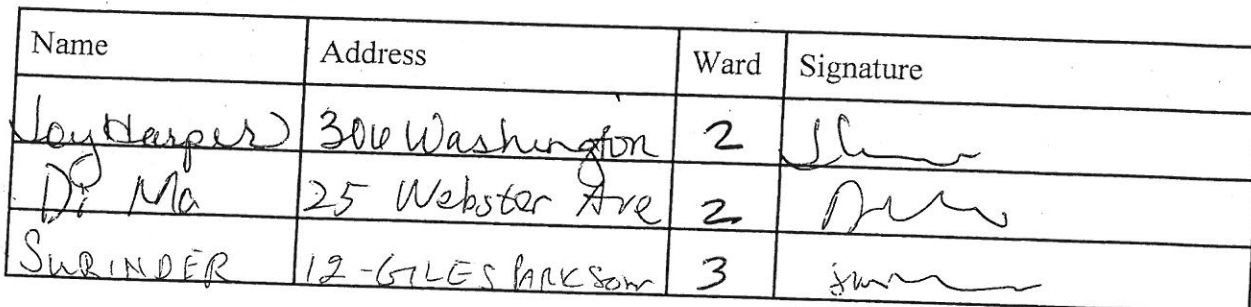 Name Address Ward Signature
Joy Harper 306 Washington 2
Di Ma 25 Webster Ave 2
SURINDER 12-GILES PARK Som 3